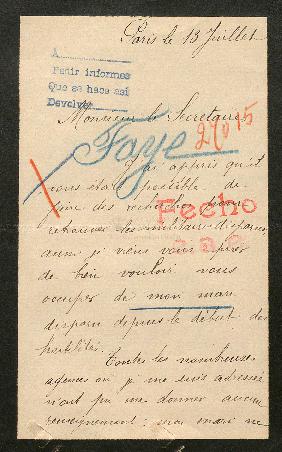 Paris le 13 Juillet
A
Pedir informes
Que se hace asi
Devolver
Monsieur le Secretaire
Faye
27015
J'ai appris qu'il
vous était possible de
faire des recherches pour
Fecho
retrouver les militaires disparus
aussi je viens vous prier
de bien vouloir vous
occuper de mon mari
disparu depuis le début des
hostilités.
Toutes les nombreuses
agences où je me suis adressée
n'ont pu me donner aucun
renseignement: mon mari ne